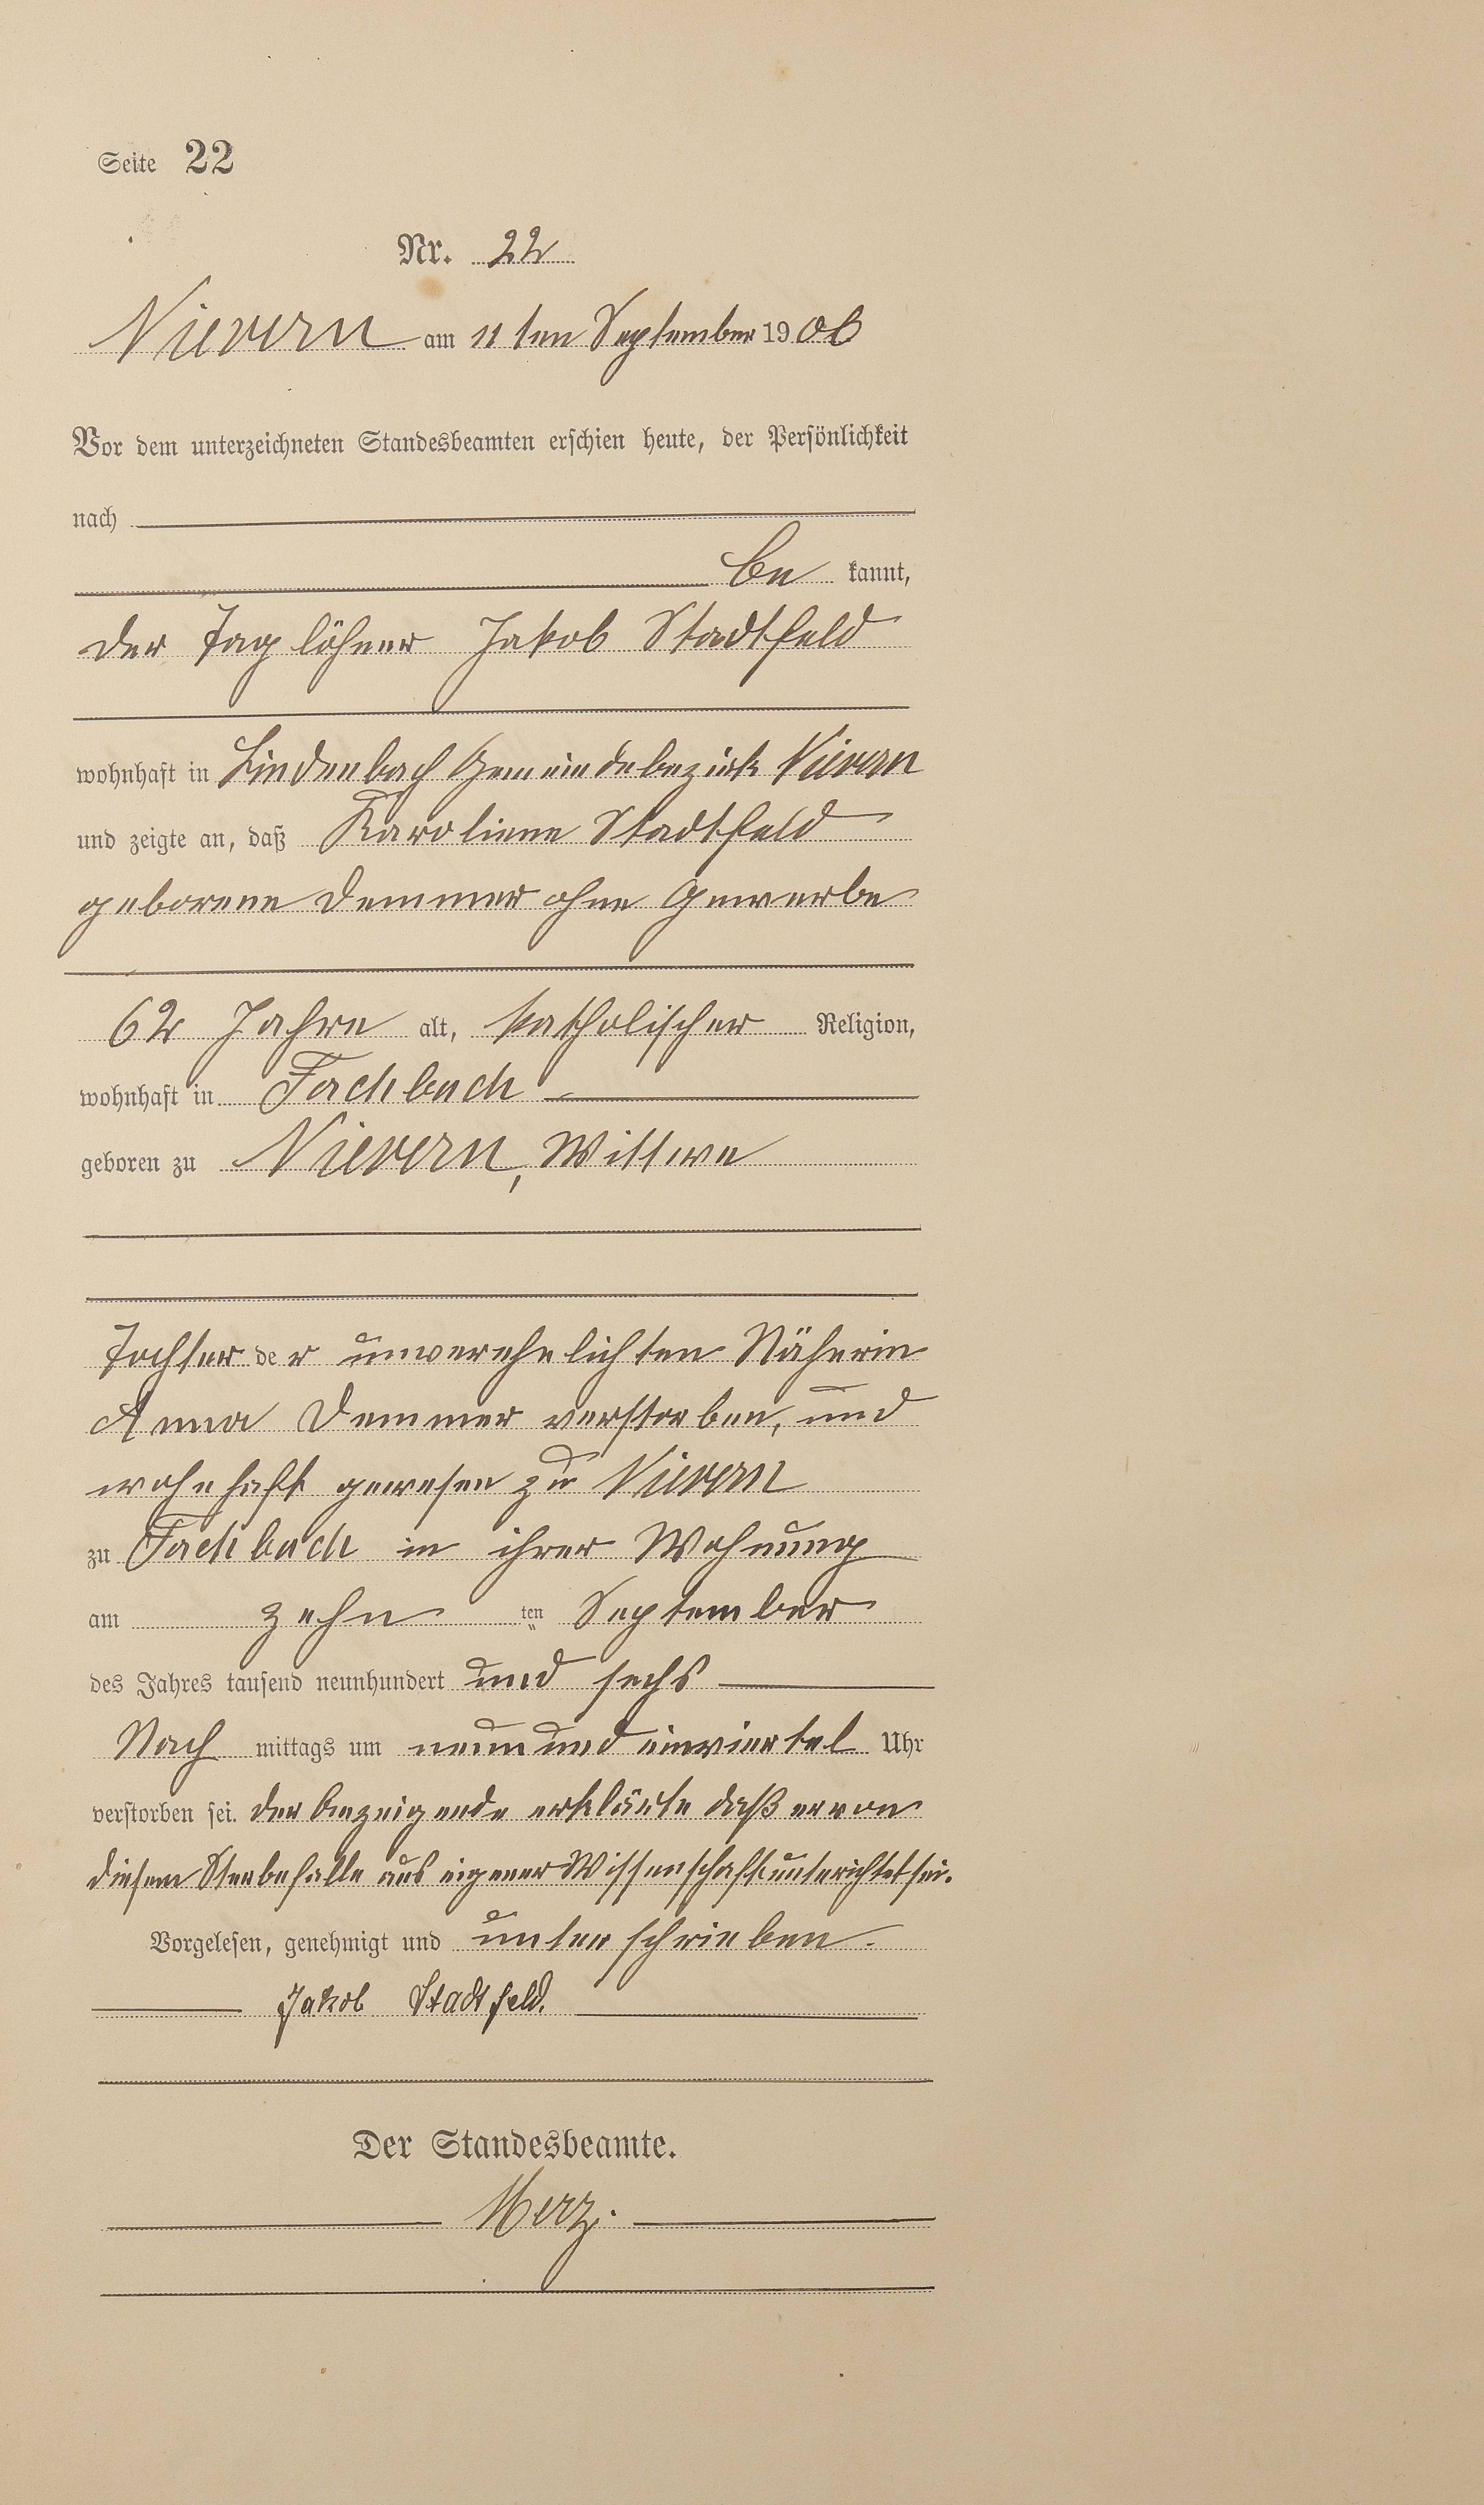 Seite 22
Nr. 22
Nievern am 11ten September 1906
Vor dem unterzeichneten Standesbeamten erschien heute, der Persönlichkeit
nach
be kannt,
der Taglöhner Jakob Stadtfeld
wohnhaft in Lindenbach Gemeindebezirk Nievern
und zeigte an, daß Karoliene Stadtfeld
geborene Demmer ohne Gewerbe
62 Jahre alt, katholischer Religion,
wohnhaft in Fachbach
geboren zu Nievern, Wittwe
Tochter der unverehelichten Näherin
Anna Demmer verstorben, und
wohnhaft gewesen zu Nievern
zu Fachbach in ihrer Wohnung
am zehn ten September
des Jahres tausend neunhundert und sechs
Nach mittags um neun und einviertel Uhr
verstorben sei. Der Anzeigende erklärte daß er von
diesem Sterbefalle aus eigener Wissenschaft unterichtet sei.
Vorgelesen, genehmigt und unterschrieben.
Jakob Stadtfeld.
Der Standesbeamte.
Merz.